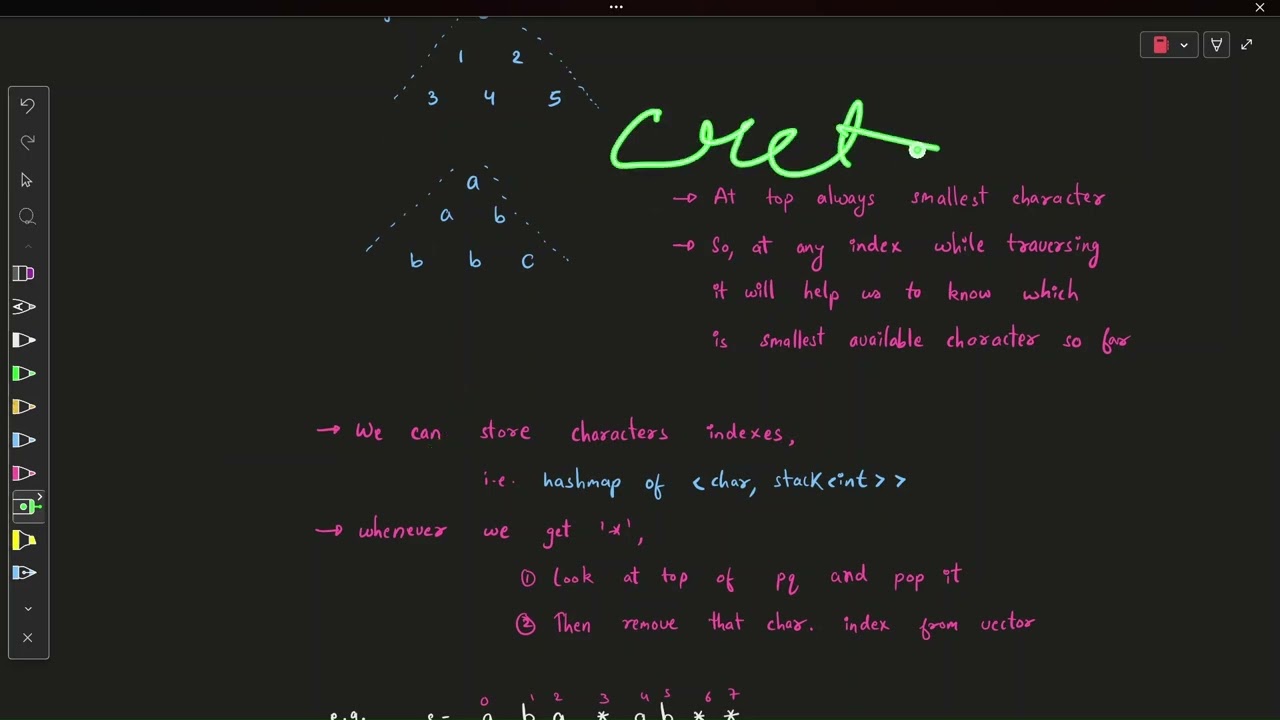 1 2
3 4 5
Cret
a
→ At top always smallest character
a b
→ So, at any index while traversing
b b c
it will help us to know which
is smallest available character so far
→ We can store characters indexes,
i.e. hashmap of <char, stack<int>>
→ whenever we get '*',
① Look at top of pq and pop it
② Then remove that char. index from vector
0 1 2 3 4 5 6 7
e.g. s= a b a * a b * *